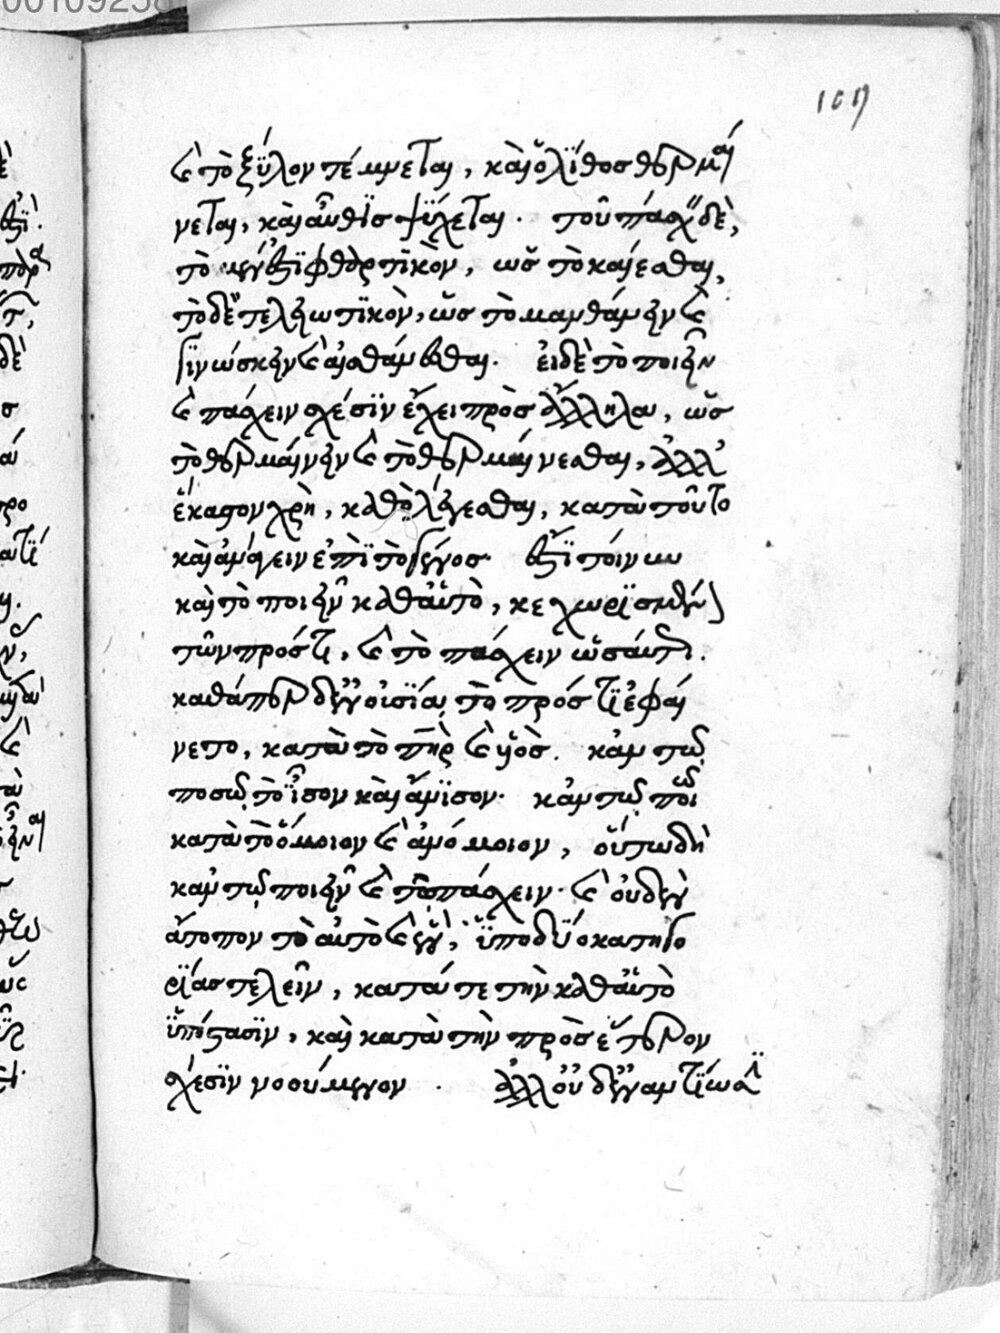 καὶ τὸ ξύλον τέμνεται, καὶ ὁ λίθος θερμαί
νεται, καὶ αὖθις ψύχεται. τοῦ πάσχειν δὲ,
τὸ μέν ἐστι φθορτικὸν, ὡς τὸ καίεσθαι,
τὸ δὲ τελειωτικὸν, ὡς τὸ μανθάνειν καὶ
γινώσκειν καὶ αἰσθάνεσθαι. εἰ δὲ τὸ ποιεῖν
καὶ πάσχειν σχέσιν ἔχει πρὸς ἄλληλα, ὡς
τὸ θερμαίνειν καὶ τὸ θερμαίνεσθαι, ἀλλ'
ἕκαστον χρὴ, καθὸ λέγεσθαι, κατὰ τοῦτο
καὶ ἀνάγειν ἐπὶ τὸ γένος. ἔστι τοίνυν
καὶ τὸ ποιεῖν καθ' αὑτὸ, κεχωρισμένον
τῶν πρός τι, καὶ τὸ πάσχειν ὡσαύτως.
καθάπερ δὲ ἐν οὐσίᾳ τὸ πρός τι ἐφαί
νετο, κατὰ τὸ πατὴρ καὶ υἱὸς. κἀν τῷ
ποσῷ τὸ ἴσον καὶ ἄνισον. κἀν τῷ ποιῷ
κατὰ τὸ ὅμοιον καὶ ἀνόμοιον, οὕτω δὴ
κἀν τῷ ποιεῖν καὶ τῷ πάσχειν. καὶ οὐδὲν
ἄτοπον τὸ αὐτὸ καὶ ἓν, ὑπὸ δύο κατηγο
ρίας τελεῖν, κατά τε τὴν καθ' αὑτὸ
ὑπόστασιν, καὶ κατὰ τὴν πρὸς ἕτερον
σχέσιν νοούμενον. ἀλλ' οὐδὲ ἐναντίωσι